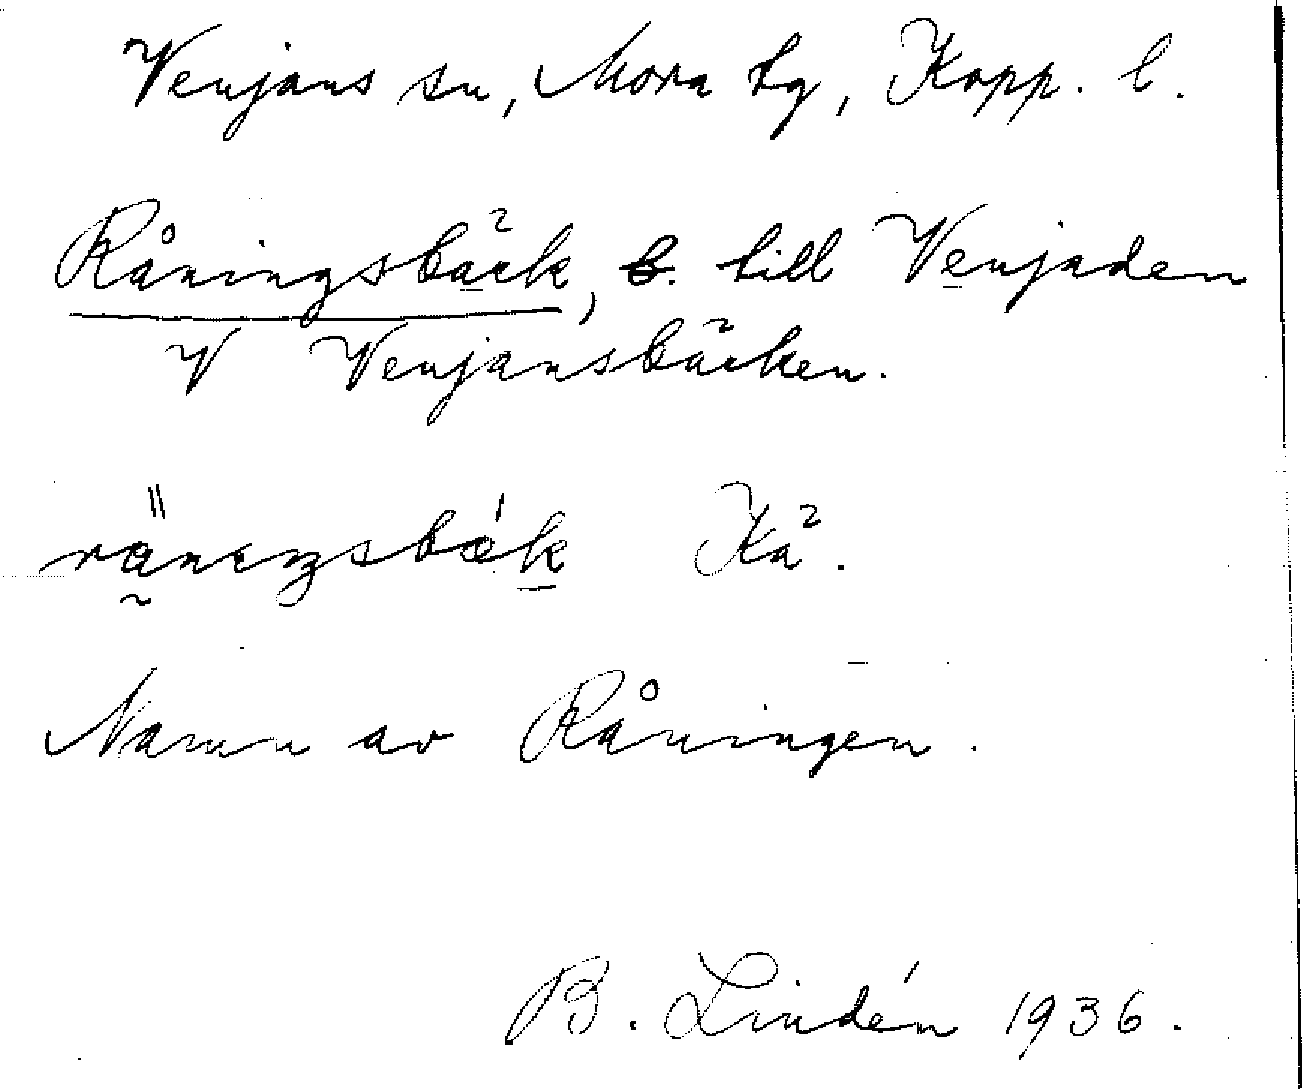 Venjans sn, Mora tg, Kopp. l.
Råningsbäck, b. till Venjaden
V Venjansbäcken.
Kä.
Namn av Råningen.
B. Lindén 1936.